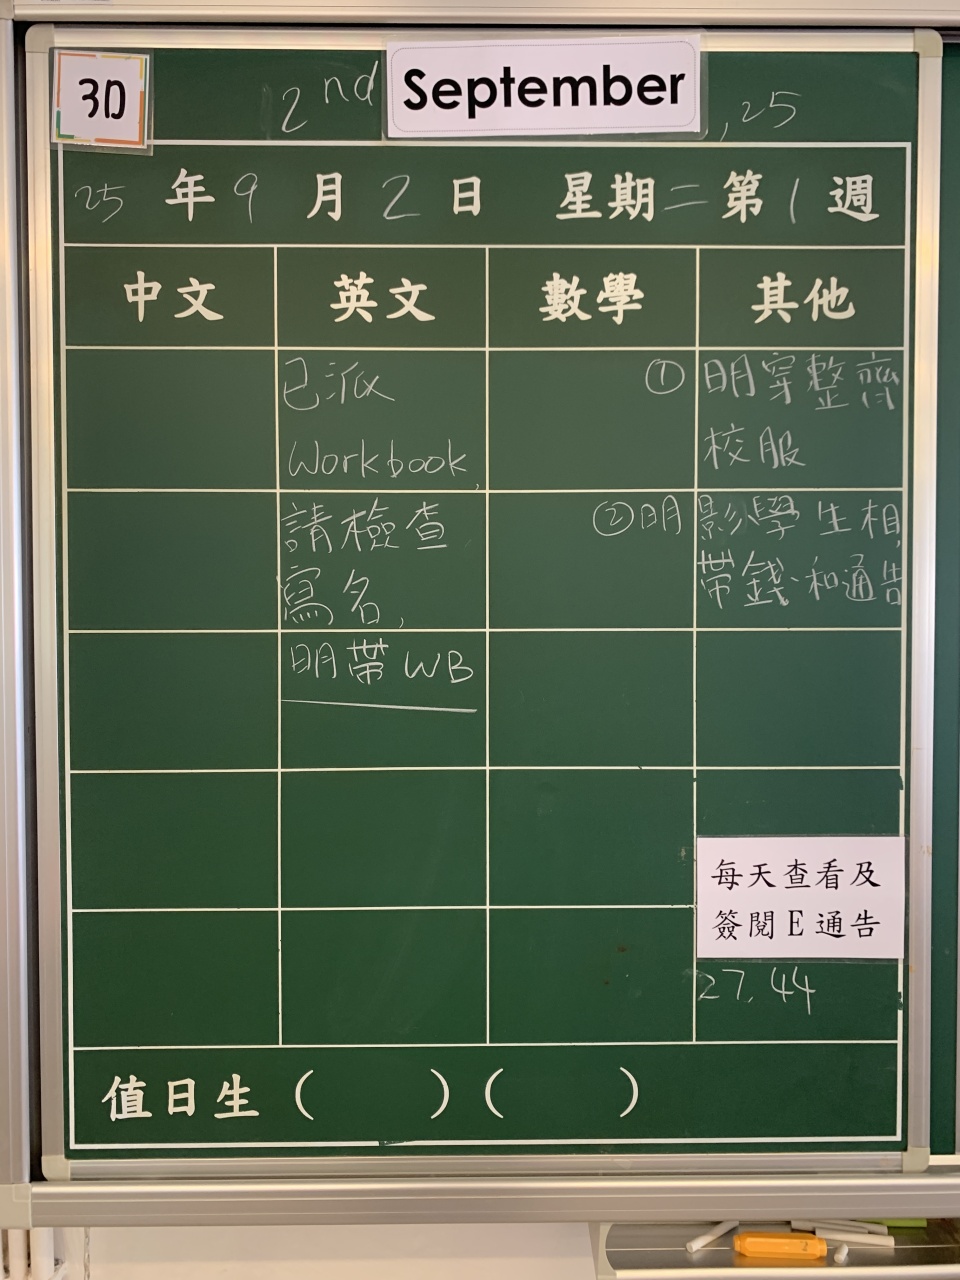 3D
2nd September, 25
25年9月2日 星期二 第1週
中文 英文 數學 其他
已派
Workbook,
請檢查
寫名,
明帶WB
① 明穿整齊
校服
② 明影學生相,
帶錢、和通告
每天查看及
簽閱E通告
27, 44
值日生( )( )